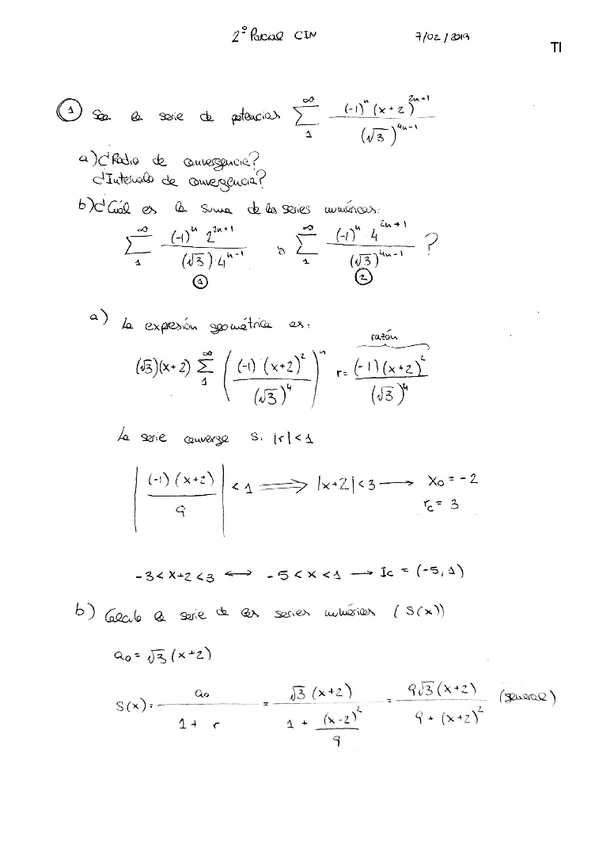 2º Parcial CIN 7/02/2019
TI
① Sea la serie de potencias ∑_{1}^{∞} (-1)^n (x+2)^{2n+1} / (√3)^{4n-1}
a) ¿Radio de convergencia?
¿Intervalo de convergencia?
b) ¿Cuál es la suma de las series numéricas:
∑_{1}^{∞} (-1)^n 2^{2n+1} / (√3)·4^{n-1} y ∑_{1}^{∞} (-1)^n 4^{2n+1} / (√3)^{4n-1} ?
① ②
a) La expresión geométrica es:
razón
(√3)(x+2) ∑_{1}^{∞} ( (-1)(x+2)^2 / (√3)^4 )^n r = (-1)(x+2)^2 / (√3)^4
La serie converge si |r|<1
| (-1)(x+2) / 9 | < 1 ⟹ |x+2|<3 ⟶ x₀ = -2
r_c = 3
-3<x+2<3 ⟷ -5<x<1 ⟶ Ic = (-5,1)
b) Calculo la serie de las series numéricas (S(x))
a₀ = √3 (x+2)
S(x) = a₀ / (1 + r) = √3 (x+2) / (1 + (x-2)^2 / 9) = 9√3 (x+2) / (9 + (x+2)^2) (general)